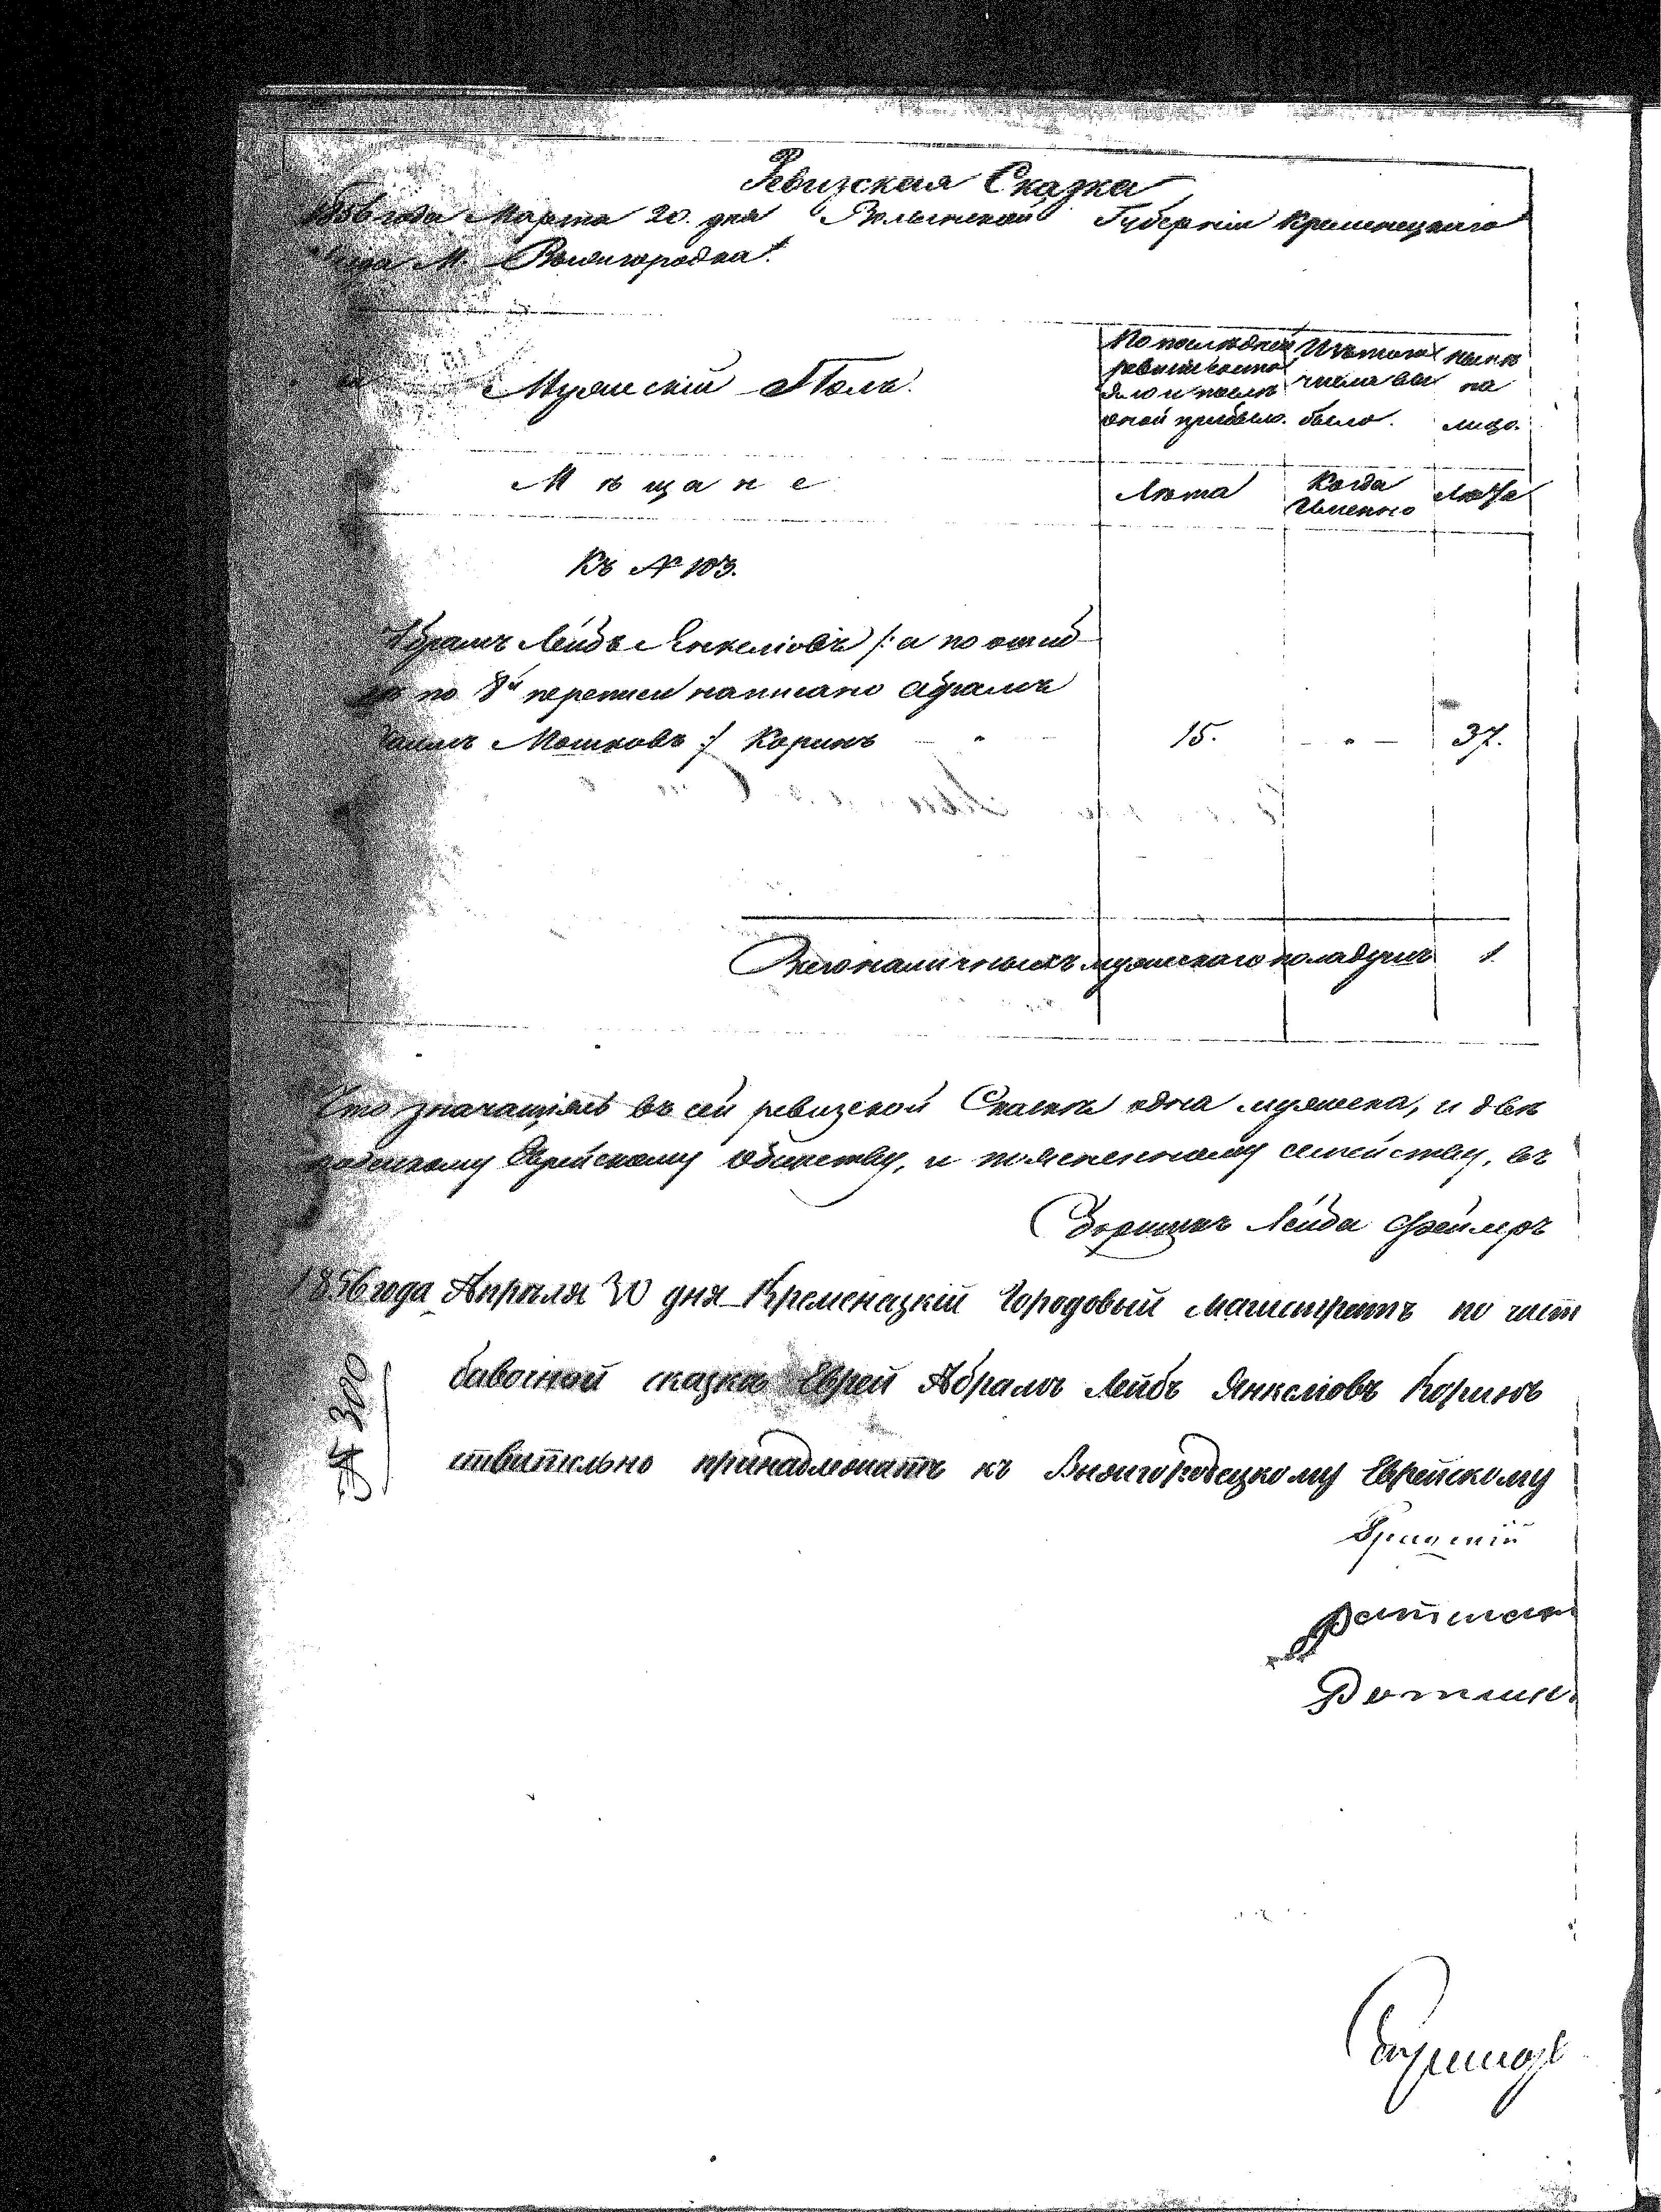 Ревизская Сказка
1856 года Марта 20. дня Волынской Губерніи Кременецкаго
М. Вышгородка.
Мужескій Полъ.
По последней ревизіи состояло и после оной прибыло.
Изъ того числа выбыло.
Ныне на лицо.
Мѣщане
Лѣта
Когда Именно
Лѣта
Къ № 103.
Абрамъ Лейбъ Янкеліовъ /: а по ошиб
кѣ по 8й переписи написано Абрамъ
Мошковъ :/ Коринъ
15.
37.
Всего наличныхъ мужескаго пола душъ 1
Что значащіясь въ сей ревизской Сказкѣ одна мужеска, и двѣ
Еврейскому обществу, и поясненному семейству, въ
Сборщикъ Лейба
1856 года Апрѣля 30 дня Кременецкій Городовый Магистратъ по част
бавочной сказкѣ Еврей Абрамъ Лейбъ Янкеліовъ Коринъ
ствительно принадлежатъ къ Вышгородецкому Еврейскому
№ 300
Ратман
Ратман